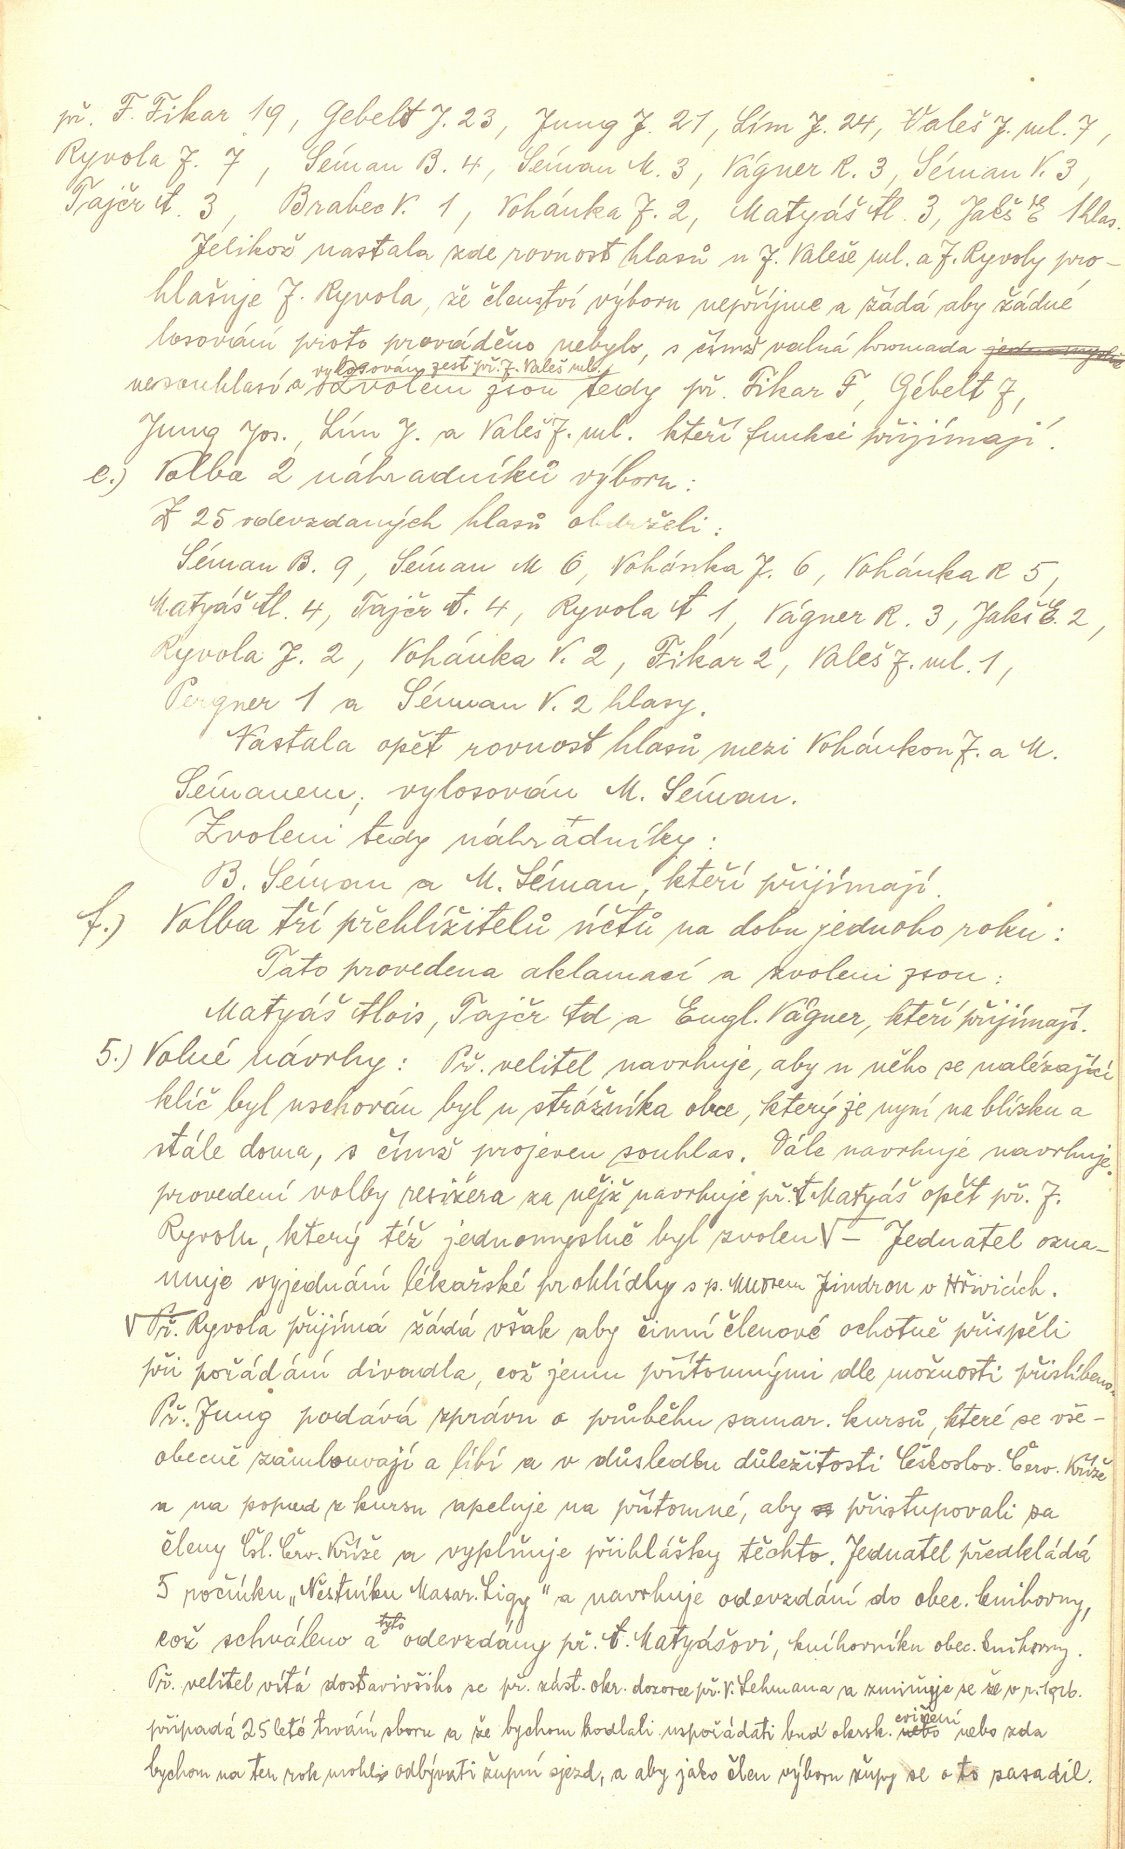 př. F. Fikar 19, Gebelt J. 23, Jung J. 21, Lím J. 24, Valeš J. ml. 7,
Ryvola J. 7, Séman B. 4, Séman M. 3, Vágner R. 3, Séman V. 3,
Tajčr A. 3, Brabec V. 1, Vohánka J. 2, Matyáš Al. 3, Jakš E 1 hlas.
Jelikož nastala zde rovnost hlasů u J. Valeše ml. a J. Ryvoly pro-
hlašuje J. Ryvola, že členství výboru nepříjme a žádá aby žádné
losování proto prováděno nebylo, s čímž valná hromada
nesouhlasí a vylosován jest př. J. Valeš ml.
Zvoleni jsou tedy př. Fikar F, Gébelt J,
Jung Jos., Lím J. a Valeš J. ml. kteří funkci přijímají.
e.) Volba 2 náhradníků výboru:
Z 25 odevzdaných hlasů obdrželi:
Séman B. 9, Séman M 6, Vohánka J. 6, Vohánka R 5,
Matyáš Al. 4, Tajčr A. 4, Ryvola A 1, Vágner R. 3, Jakš E. 2,
Ryvola J. 2, Vohánka V. 2, Fikar 2, Valeš J. ml. 1,
Pergner 1 a Séman V. 2 hlasy.
Nastala opět rovnost hlasů mezi Vohánkou J. a M.
Sémanem, vylosován M. Séman.
Zvoleni tedy náhradníky:
B. Séman a M. Séman, kteří přijímají.
f.) Volba tří přehlížitelů účtů na dobu jednoho roku:
Tato provedena aklamací a zvoleni jsou:
Matyáš Alois, Tajčr Ad a Engl. Vágner, kteří přijímají.
5.) Volné návrhy: Př. velitel navrhuje, aby u něho se nalézající
klíč byl uschován byl u strážníka obce, který je nyní na blízku a
stále doma, s čímž projeven souhlas. Dále navrhuje navrhuje
provedení volby resižéra za nějž navrhuje př. A Matyáš opět př. J.
Ryvolu, který též jednomyslně byl zvolen V – Jednatel ozna-
muje vyjednání lékařské prohlídky s p. MUDrem Jindrou v Hřivicích.
V Př. Ryvola přijímá žádá však aby činní členové ochotně přispěli
při pořádání divadla, což jemu přítomnými dle možnosti přislíbeno.
Př. Jung podává zprávu o průběhu samar. kursů, které se vše-
obecně zamlouvají a líbí a v důsledku důležitosti Českoslov. Červ. Kříže
a na popud z kursu apeluje na přítomné, aby přistupovali za
členy Čsl. Červ. Kříže a vyplňuje přihlášky těchto. Jednatel předkládá
5 ročníku „Věstníku Masar. Ligy" a navrhuje odevzdání do obec. knihovny,
což schváleno a tyto odevzdány př. A. Matyášovi, knihovníku obec. knihovny.
Př. velitel vítá dostavivšího se př. zást. okr. dozorce př. V. Lehmana a zmiňuje se že v r. 1926.
připadá 25 leté trvání sboru a že bychom hodlali uspořádati buď okrsk. cvičení nebo zda
bychom na ten rok mohli odbývati župní sjezd, a aby jako člen výboru župy se o to zasadil.